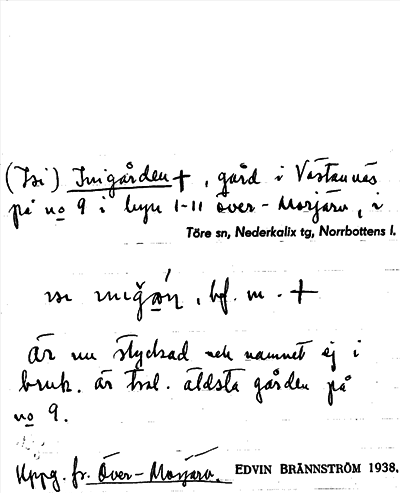 (Isi) Inigården +, gård i Västannäs
på no 9 i byn 1-11 Över-Morjärv, i
Töre sn, Nederkalix tg, Norrbottens l.
bf. m. +
är nu styckad och namnet ej i
bruk. är trol. äldsta gården på
no 9.
Uppg. fr. Över-Morjärv. EDVIN BRÄNNSTRÖM 1938.